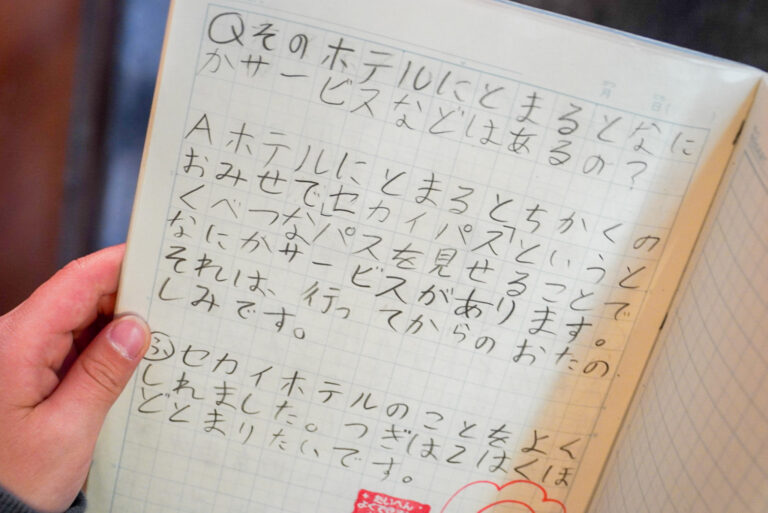 Qそのホテルにとまるとなに
かサービスなどはあるの？
Aホテルにとまるとちかくの
おみせで「セカイパス」というと
くべつなパスを見せることで
なにかサービスがあります。
それは、行ってからのおたの
しみです。
ふセカイホテルのことをよく
しれました。つぎは2はくほ
どとまりたいです。
たいへん